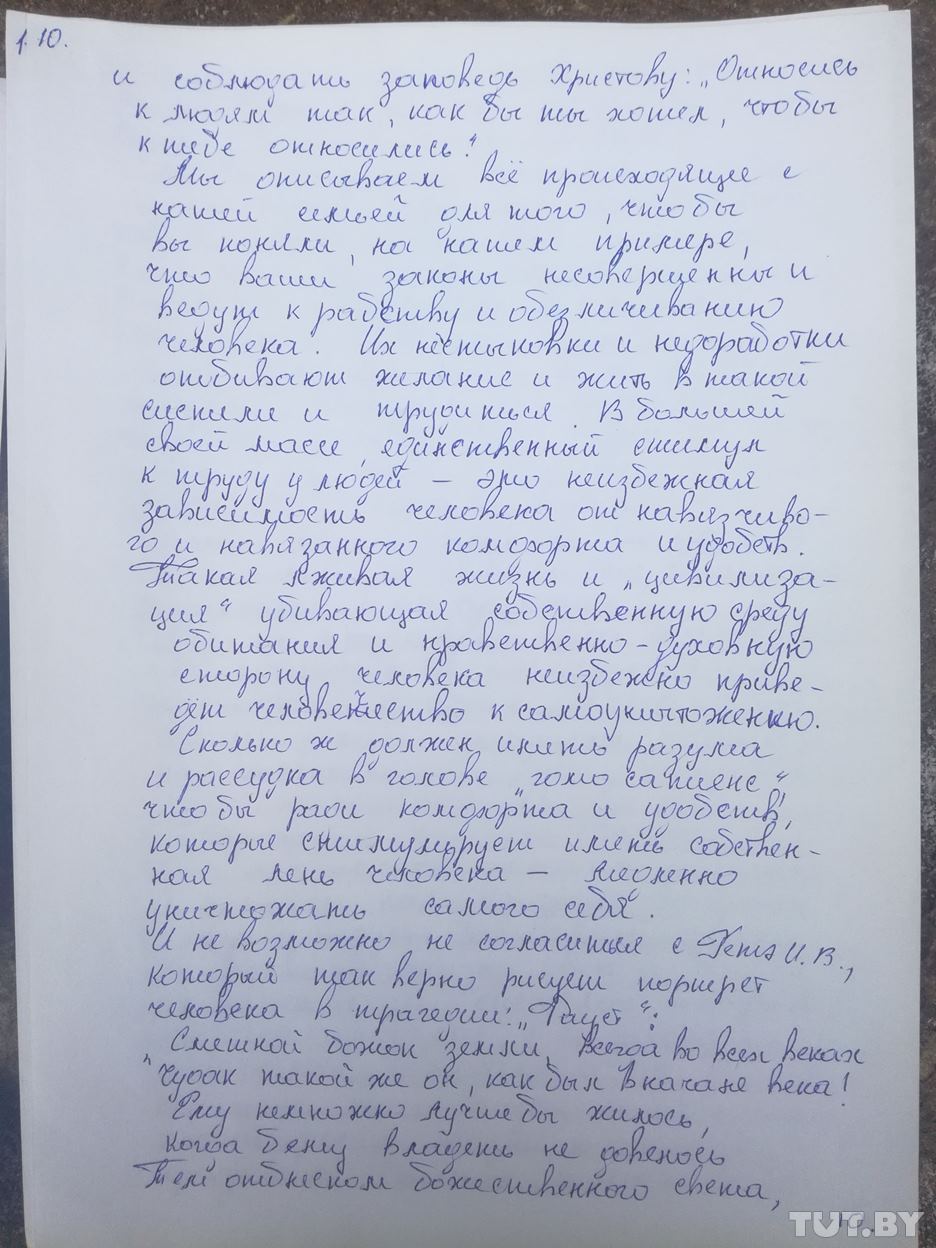 1.10.
и соблюдать заповедь Христову: „Относись
к людям так, как бы ты хотел, чтобы
к тебе относились."
Мы описываем всё происходящее с
нашей семьёй для того, чтобы
вы поняли, на нашем примере,
что ваши законы несовершенны и
ведут к рабству и обезличиванию
человека. Их нестыковки и недоработки
отбивают желание и жить в такой
системе и трудиться. В большей
своей массе, единственный стимул
к труду у людей – это неизбежная
зависимость человека от навязчиво-
го и навязанного комфорта и удобств.
Такая лживая жизнь и „цивилиза-
ция" убивающая собственную среду
обитания и нравственно-духовную
сторону человека неизбежно приве-
дёт человечество к самоуничтожению.
Сколько ж должен иметь разума
и рассудка в голове „гомо сапиенс",
чтобы ради комфорта и удобств,
которые стимулирует иметь собствен-
ная лень человека – медленно
уничтожать самого себя".
И не возможно не согласиться с Гётэ И.В.,
который так верно рисует портрет
человека в трагедии: „Фауст":
„Смешной божок земли, всегда во всех веках
Чудак такой же он, как был в начале века!
Ему немножко лучше бы жилось,
Когда б ему владеть не довелось
Тем отблеском божественного света,
TUT.BY